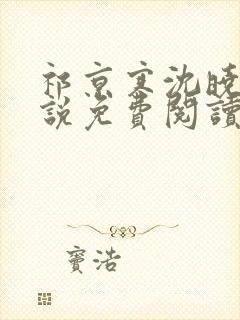 祁京寒沈晚
說免費閱讀
竇浩